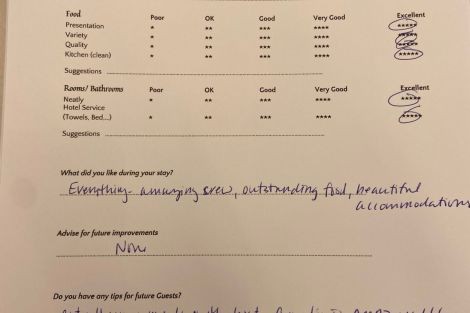 Food Poor OK Good Very Good Excellent
Presentation * ** *** **** *****
Variety * ** *** **** *****
Quality * ** *** **** *****
Kitchen (clean) * ** *** **** *****
Suggestions
Rooms/ Bathrooms Poor OK Good Very Good Excellent
Neatly * ** *** **** *****
Hotel Service
(Towels, Bed...) * ** *** **** *****
Suggestions
What did you like during your stay?
Everything - amazing crew, outstanding food, beautiful
accommodations
Advise for future improvements
None
Do you have any tips for future Guests?